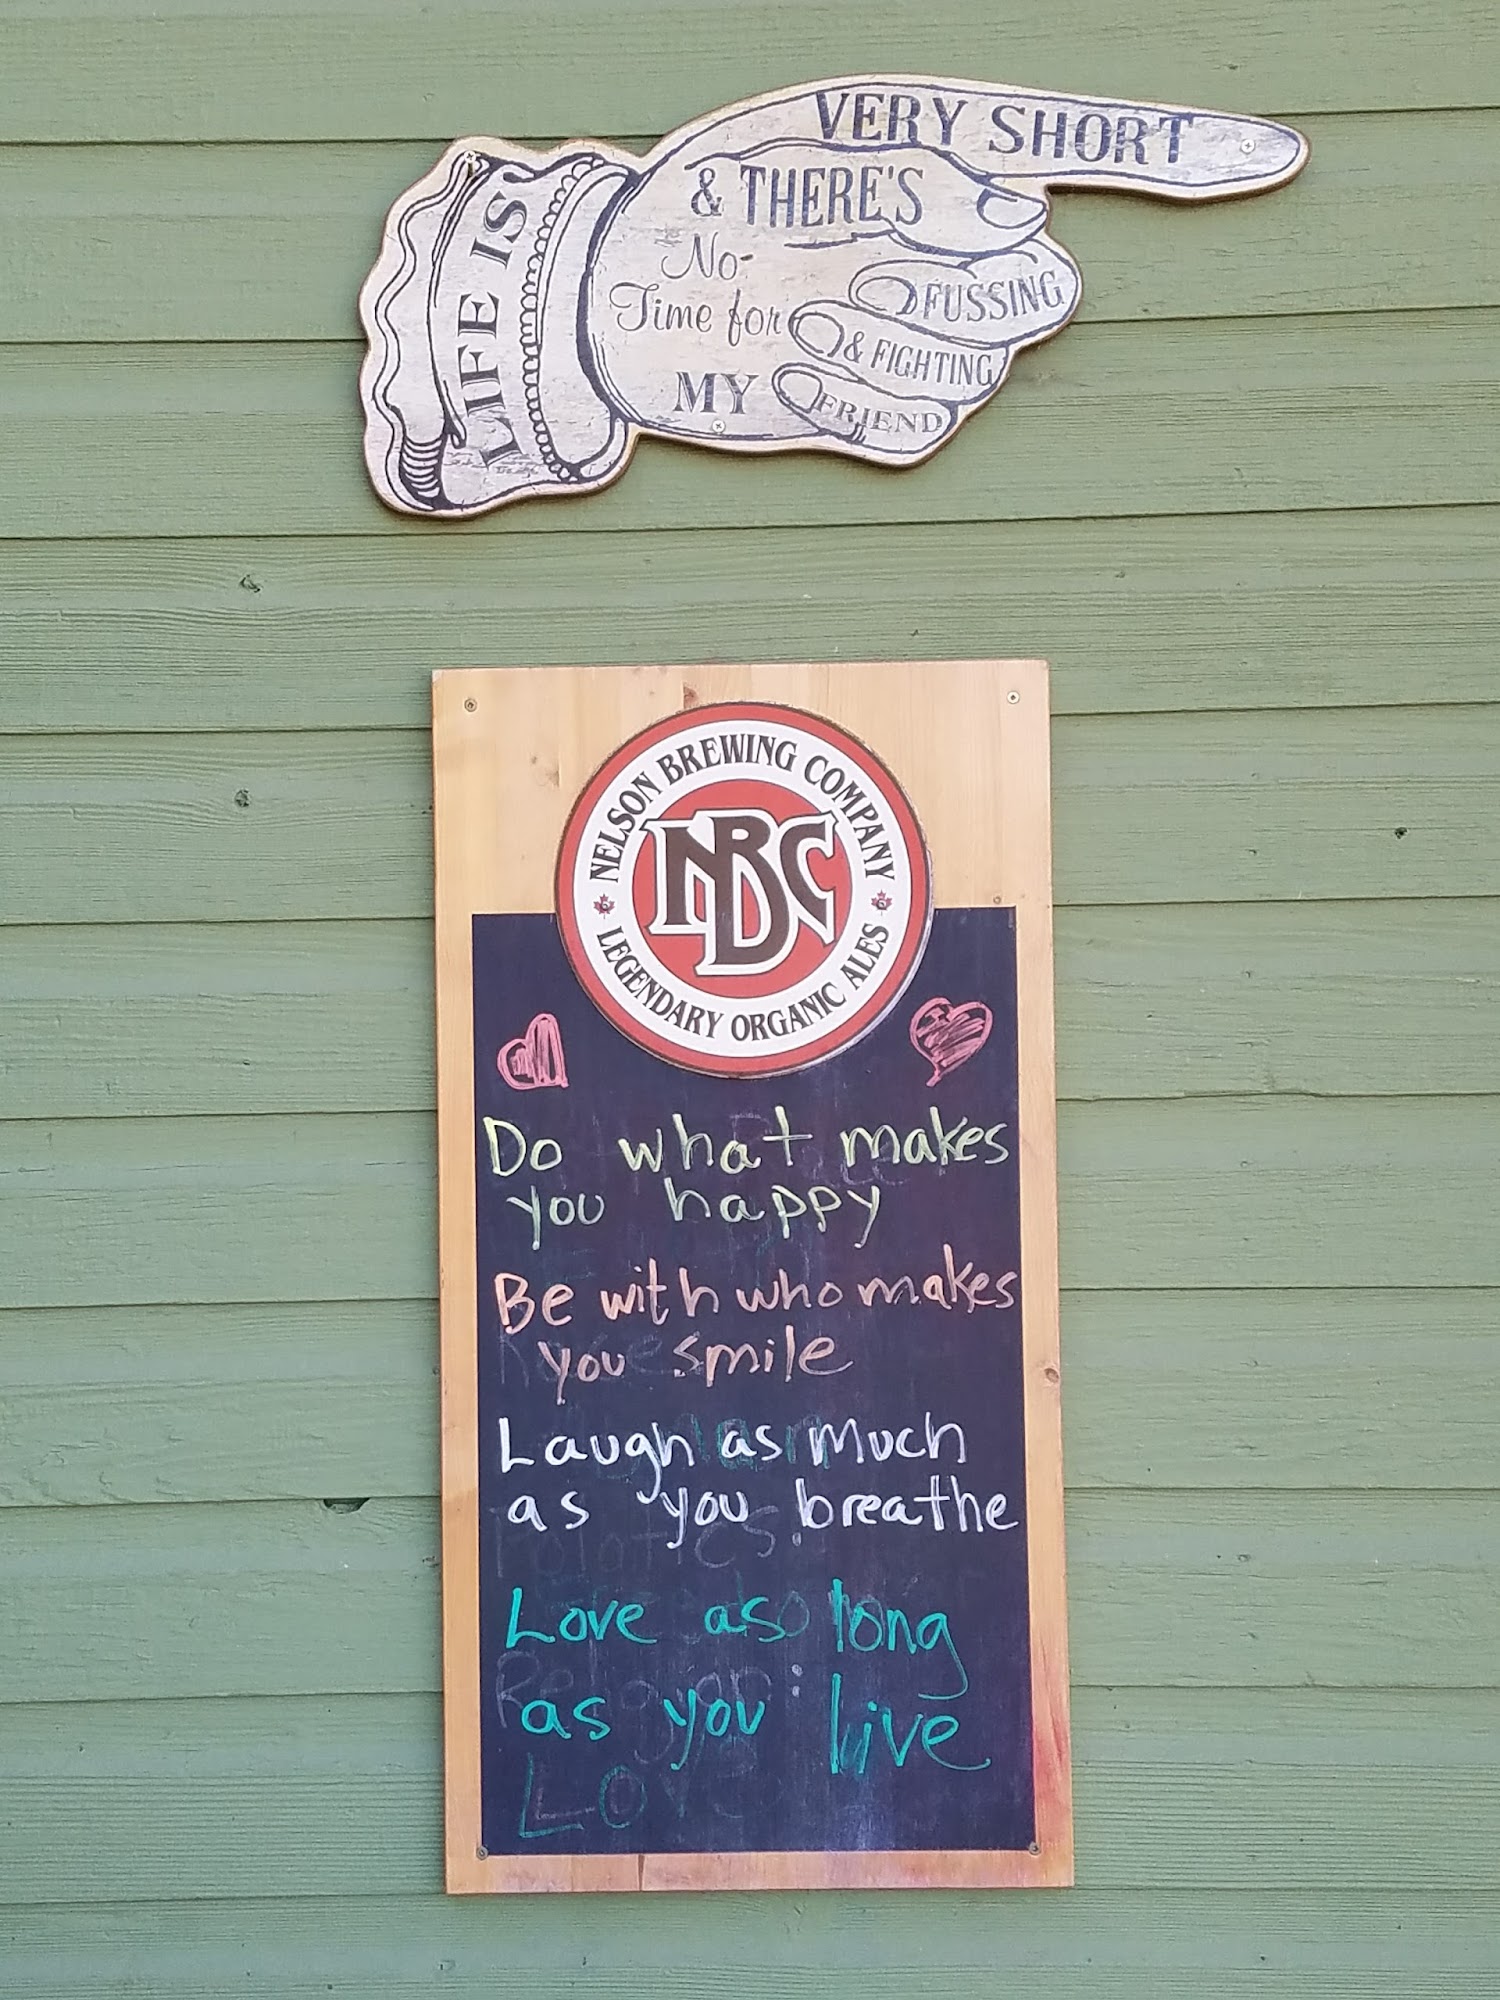 LIFE IS
VERY SHORT
& THERE'S
No
Time for
FUSSING
& FIGHTING
MY FRIEND
NELSON BREWING COMPANY
NBC
LEGENDARY ORGANIC ALES
Do what makes
you happy
Be with who makes
you smile
Laugh as much
as you breathe
Love as long
as you live
Love